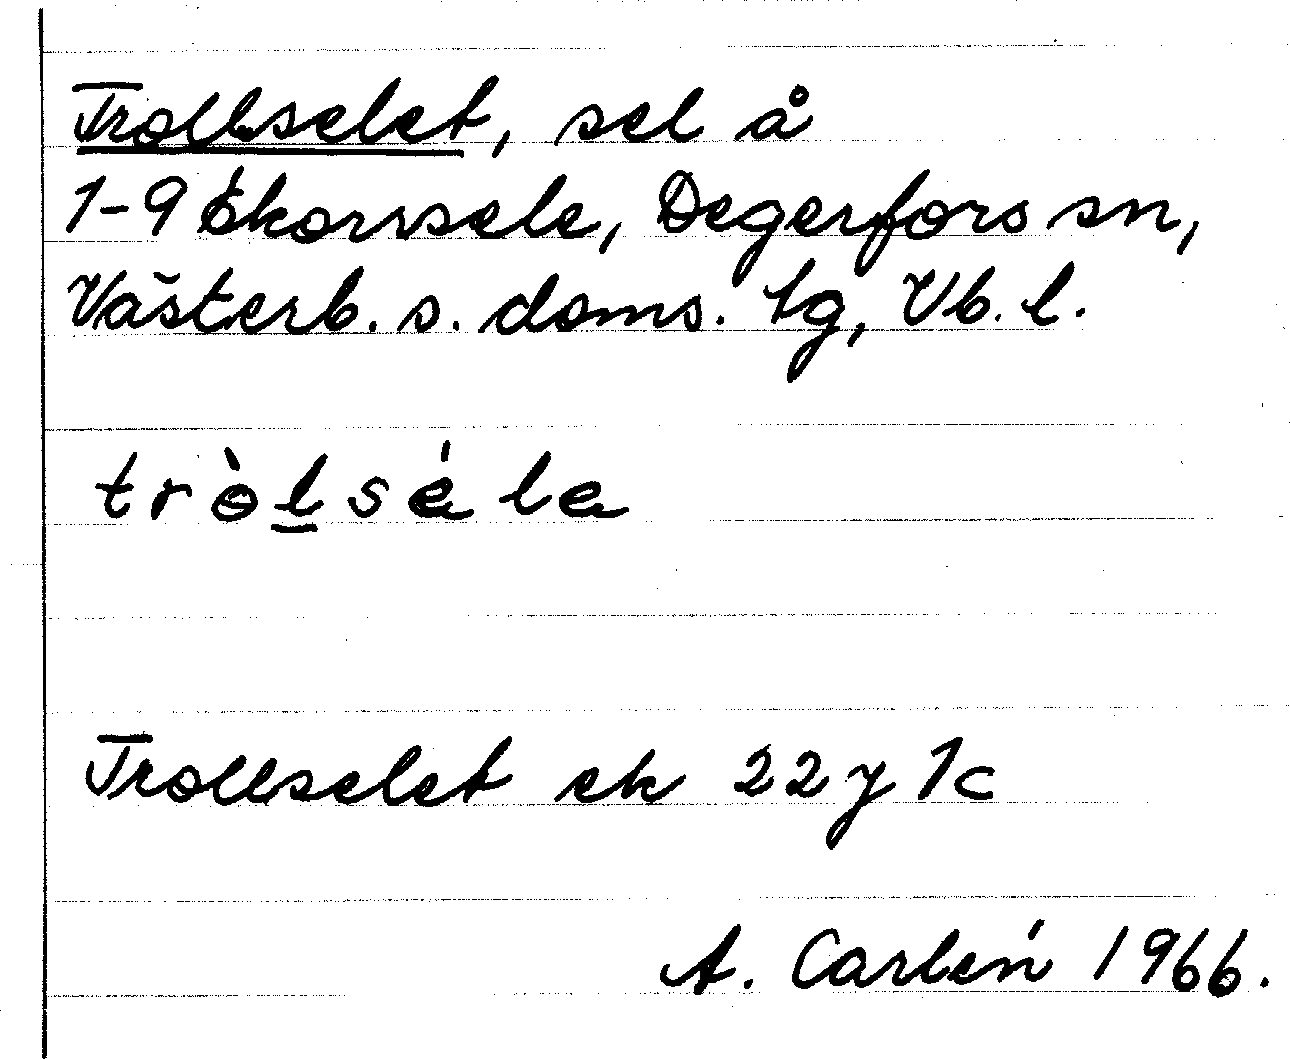 Trollselet, sel å
1-9 Ekorrsele, Degerfors sn,
Västerb. s. doms. tg, Vb. l.
Trollselet ek 22 y 1c
A. Carlén 1966.